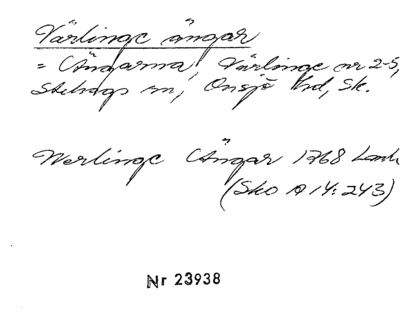 Värlinge ängar
= Ängarna, Värlinge nr 2-5,
Stehags sn, Onsjö hd, Sk.
Werlinge Ängar 1768 Lantm
(Sko A 14: 243)
Nr 23938